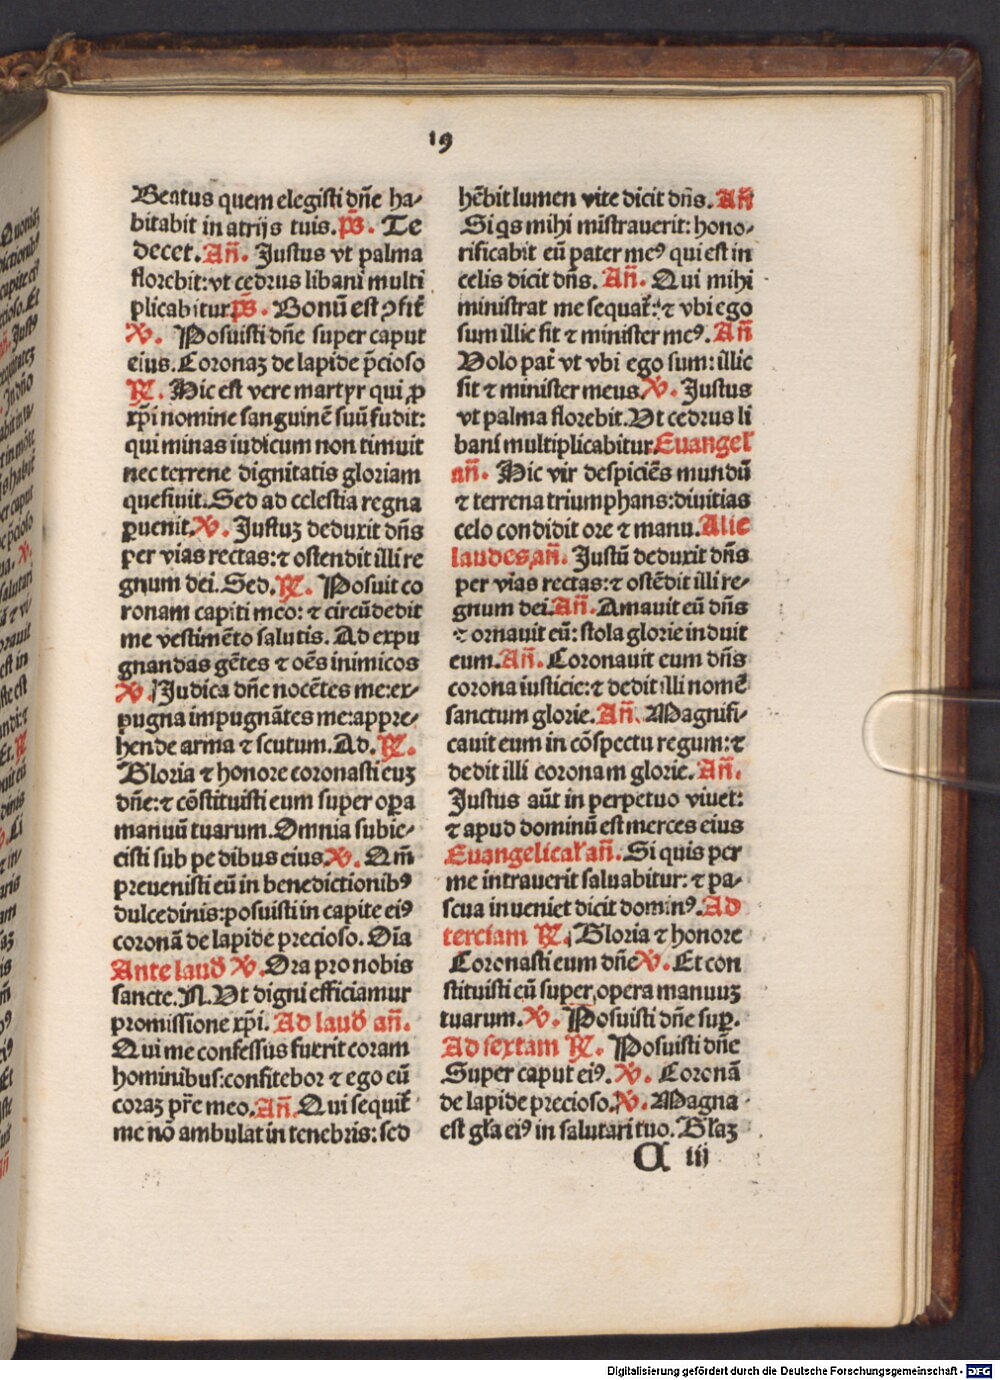 19
Beatus quem elegisti dn̄e ha⸗
bitabit in atrijs tuis. p̄s. Te
decet. An̄. Justus vt palma
florebit: vt cedrus libani multi
plicabitur p̄s. Bonū est ꝯfit̄
℣. Posuisti dn̄e super caput
eius. Coronaꝫ de lapide p̄cioso
℟. Hic est vere martyr qui ꝓ
xp̄i nomine sanguinē suū fudit:
qui minas iudicum non timuit
nec terrene dignitatis gloriam
quesiuit. Sed ad celestia regna
ꝑuenit. ℣. Justuꝫ deduxit dn̄s
per vias rectas: ⁊ ostendit illi re
gnum dei. Sed. ℟. Posuit co
ronam capiti meo: ⁊ circūdedit
me vestimēto salutis. Ad expu
gnandas gētes ⁊ oēs inimicos
℣. Judica dn̄e nocētes me: ex⸗
pugna impugnātes me: appre⸗
hende arma ⁊ scutum. Ad. ℟.
Gloria ⁊ honore coronasti euꝫ
dn̄e: ⁊ cōstituisti eum super oꝑa
manuū tuarum. Omnia subie⸗
cisti sub pedibus eius. ℣. Qm̄
preuenisti eū in benedictionibꝰ
dulcedinis: posuisti in capite eiꝰ
coronā de lapide precioso. Oīa
Ante laud̄ ℣. Ora pro nobis
sancte. N. Vt digni efficiamur
promissione xp̄i. Ad laud̄ an̄.
Qui me confessus fuerit coram
hominibus: confitebor ⁊ ego eū
coraꝫ pr̄e meo. An̄. Qui sequit̄
me nō ambulat in tenebris: sed
hēbit lumen vite dicit dn̄s. An̄
Si qs mihi mīstrauerit: hono⸗
rificabit eū pater meꝰ qui est in
celis dicit dn̄s. An̄. Qui mihi
ministrat me sequat̄: ⁊ vbi ego
sum illic sit ⁊ minister meꝰ. An̄
Volo pat̄ vt vbi ego sum: illic
sit ⁊ minister meus. ℣. Justus
vt palma florebit. Vt cedrus li
bani multiplicabitur. Euangeł
an̄. Hic vir despiciēs mundū
⁊ terrena triumphans: diuitias
celo condidit ore ⁊ manu. Alie
laudes, an̄. Justū deduxit dn̄s
per vias rectas: ⁊ ostēdit illi re⸗
gnum dei. An̄. Amauit eū dn̄s
⁊ ornauit eū: stola glorie induit
eum. An̄. Coronauit eum dn̄s
corona iusticie: ⁊ dedit illi nomē
sanctum glorie. An̄. Magnifi⸗
cauit eum in cōspectu regum: ⁊
dedit illi coronam glorie. An̄.
Justus aūt in perpetuo viuet:
⁊ apud dominū est merces eius
Euangelicał an̄. Si quis per
me intrauerit saluabitur: ⁊ pa⸗
scua inueniet dicit dominꝰ. Ad
terciam ℟. Gloria ⁊ honore
Coronasti eum dn̄e ℣. Et con
stituisti eū super opera manuuꝫ
tuarum. ℣. Posuisti dn̄e suꝑ.
Ad sextam ℟. Posuisti dn̄e
Super caput eiꝰ. ℣. Coronā
de lapide precioso. ℣. Magna
est gła eiꝰ in salutari tuo. Głaꝫ
C iij
Digitalisierung gefördert durch die Deutsche Forschungsgemeinschaft - DFG